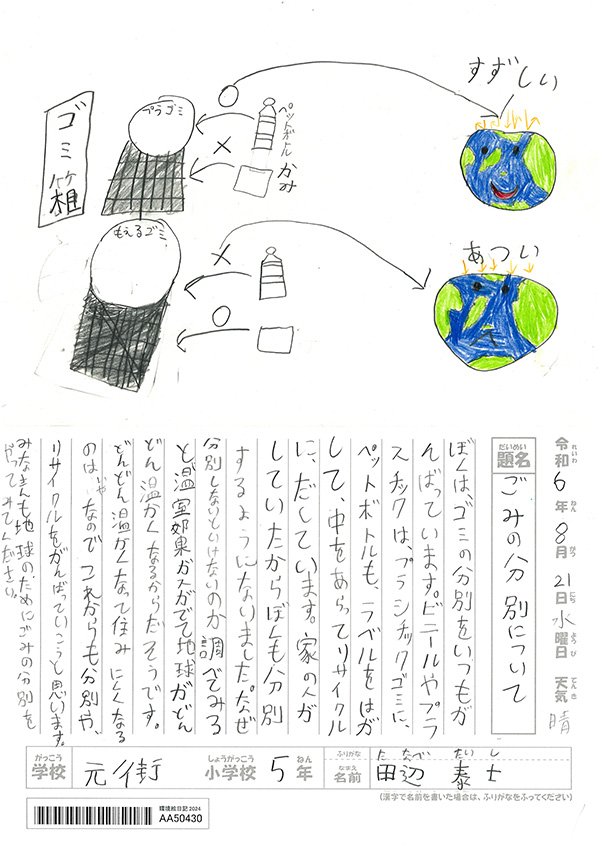 すずしい
プラゴミ
ペットボトル
かみ
ゴミ箱
○
×
あつい
もえるゴミ
×
○
令和6年8月21日水曜日 天気 晴
れいわ ねん がつ にち ようび てんき
だいめい
題名
ごみの分別について
ぼくは、ゴミの分別をいつもが
んばっています。ビニールやプラ
スチックは、プラシチックゴミに、
ペットボトルも、ラベルをはが
して、中をあらってリサイクル
に、だしています。家の人が
していたからぼくも分別
するようになりました。なぜ
分別しないといけないのか調べてみる
と温室効果ガスがでて地球がどん
どん温かくなるからだそうです。
どんどん温かくなって住みにくくなる
のはいやなのでこれからも分別や、
リサイクルをがんばっていこうと思います。
みなさんも地球のためにごみの分別を
やってみてください。
がっこう
学校
元街
しょうがっこう
小学校
5
ねん
年
ふりがな
たなべ たいし
なまえ
名前
田辺 泰士
(漢字で名前を書いた場合は、ふりがなをふってください)
環境絵日記2024
AA50430